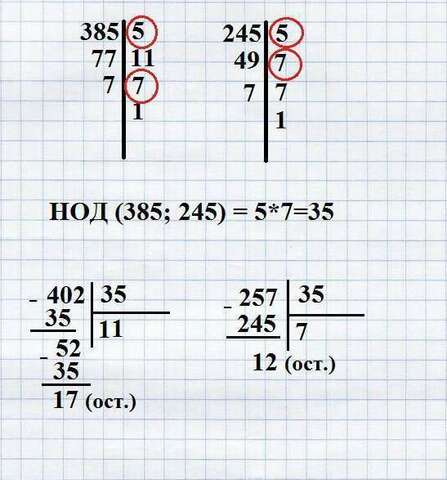 385 5 245 5
77 11 49 7
7 7 7 7
1 1
НОД (385; 245) = 5*7=35
- 402 35 - 257 35
35 11 245 7
- 52 12 (ост.)
35
17 (ост.)